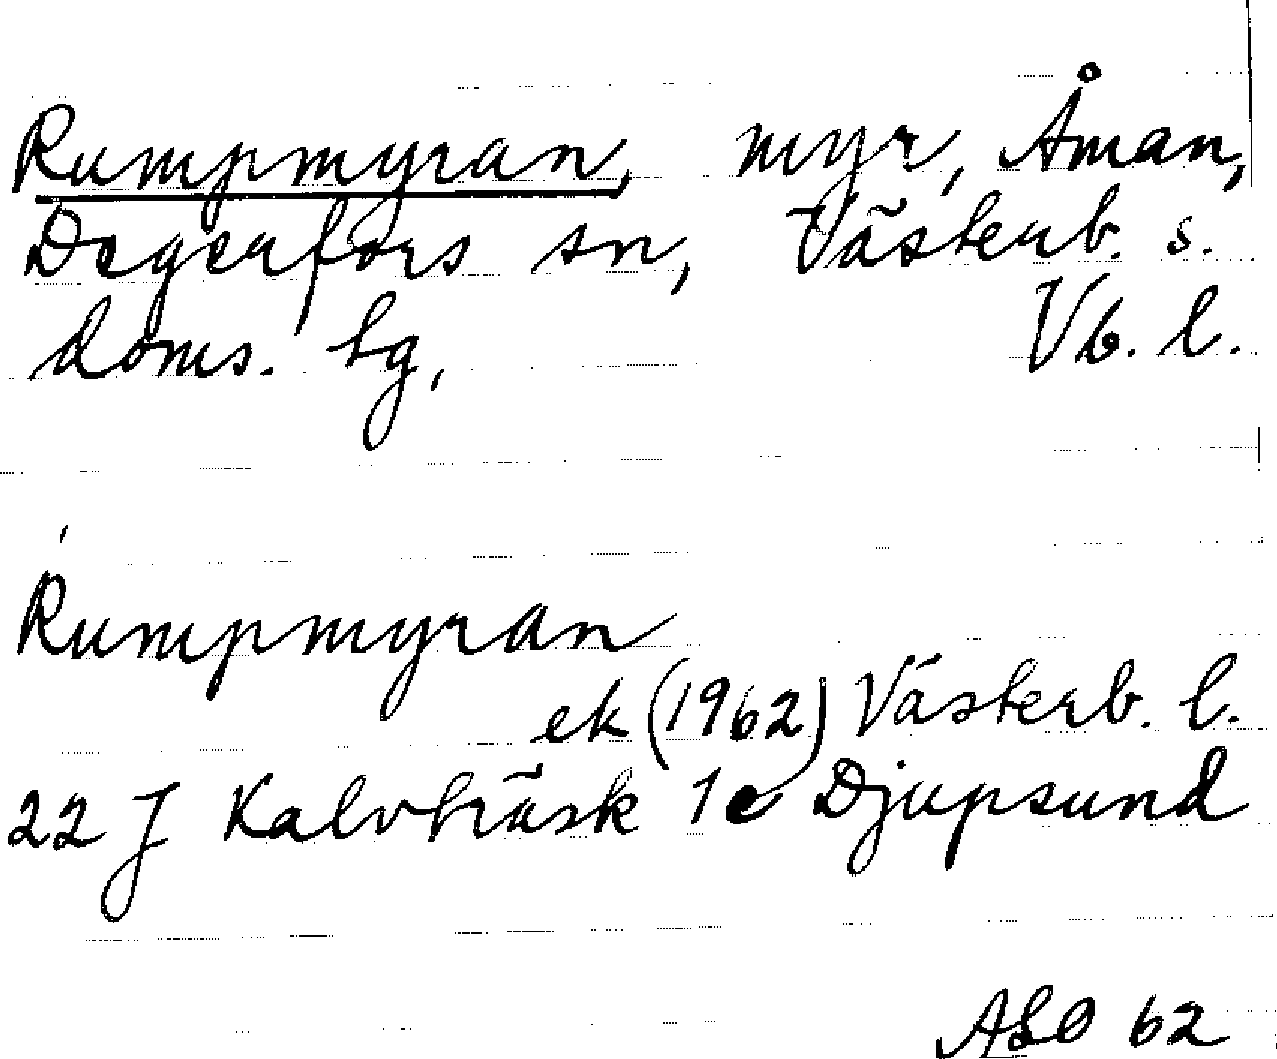 Rumpmyran, myr, Åman,
Degerfors sn, Västerb. s.
doms. hg, Vb. l.
Rumpmyran
ek (1962) Västerb. l.
22 J Kalvträsk 1c Djupsund
ALO 62